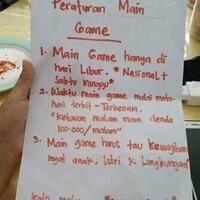 Peraturan Main
Game
1. Main Game hanya di
hari Libur. * Nasional +
Sabtu Minggu *
2. Waktu main game mulai mata-
hari terbit - Terbenam.
"Ketauan malam main denda
100.000/malam"
3. Main game harus tau kewajiban
ingat anak, Istri & Lingkungan